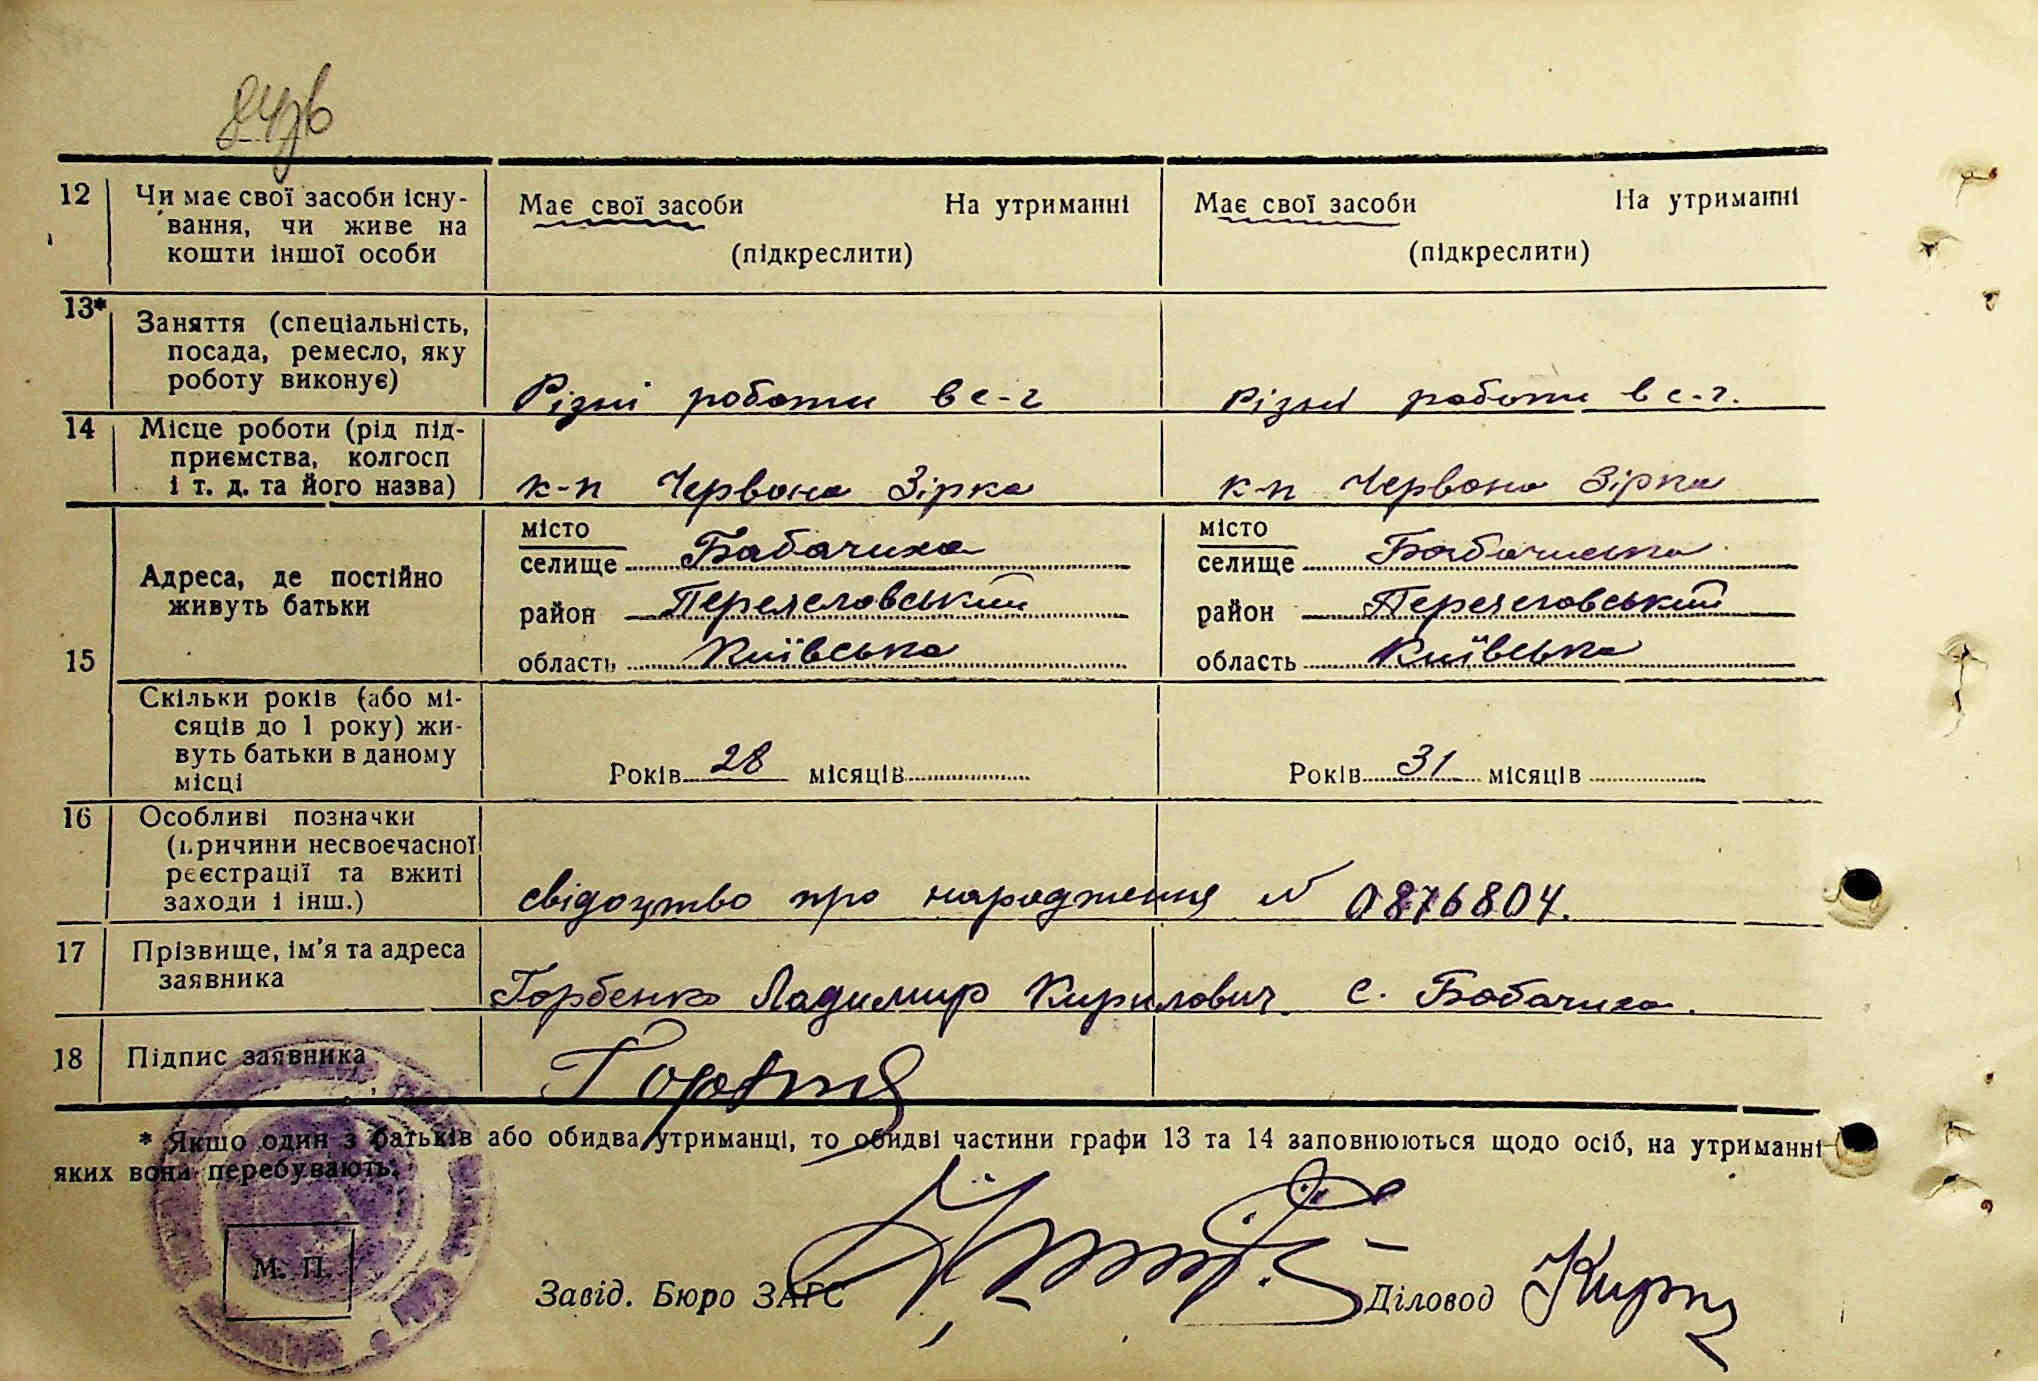 12 Чи має свої засоби існу- Має свої засоби На утриманні Має свої засоби На утриманні
вання, чи живе на
кошти іншої особи (підкреслити) (підкреслити)
13* Заняття (спеціальність,
посада, ремесло, яку
роботу виконує) Різні роботи в с-г Різні роботи в с.-г.
14 Місце роботи (рід під-
приємства, колгосп
і т. д. та його назва) к-п Червона Зірка к-п Червона Зірка
15 Адреса, де постійно
живуть батьки
місто місто
селище Бабачиха селище
район район
область Київська область Київська
Скільки років (або мі-
сяців до 1 року) жи-
вуть батьки в даному
місці Років 28 місяців Років 31 місяців
16 Особливі позначки
(причини несвоєчасної
реєстрації та вжиті
заходи і інш.) свідоцтво про народження № 0876804.
17 Прізвище, ім'я та адреса
заявника Горбенко Ладимир Кирилович. с. Бабачиха.
18 Підпис заявника
* Якщо один з батьків або обидва утриманці, то обидві частини графи 13 та 14 заповнюються щодо осіб, на утриманні
яких вони перебувають.
М. П.
Завід. Бюро ЗАГС Діловод